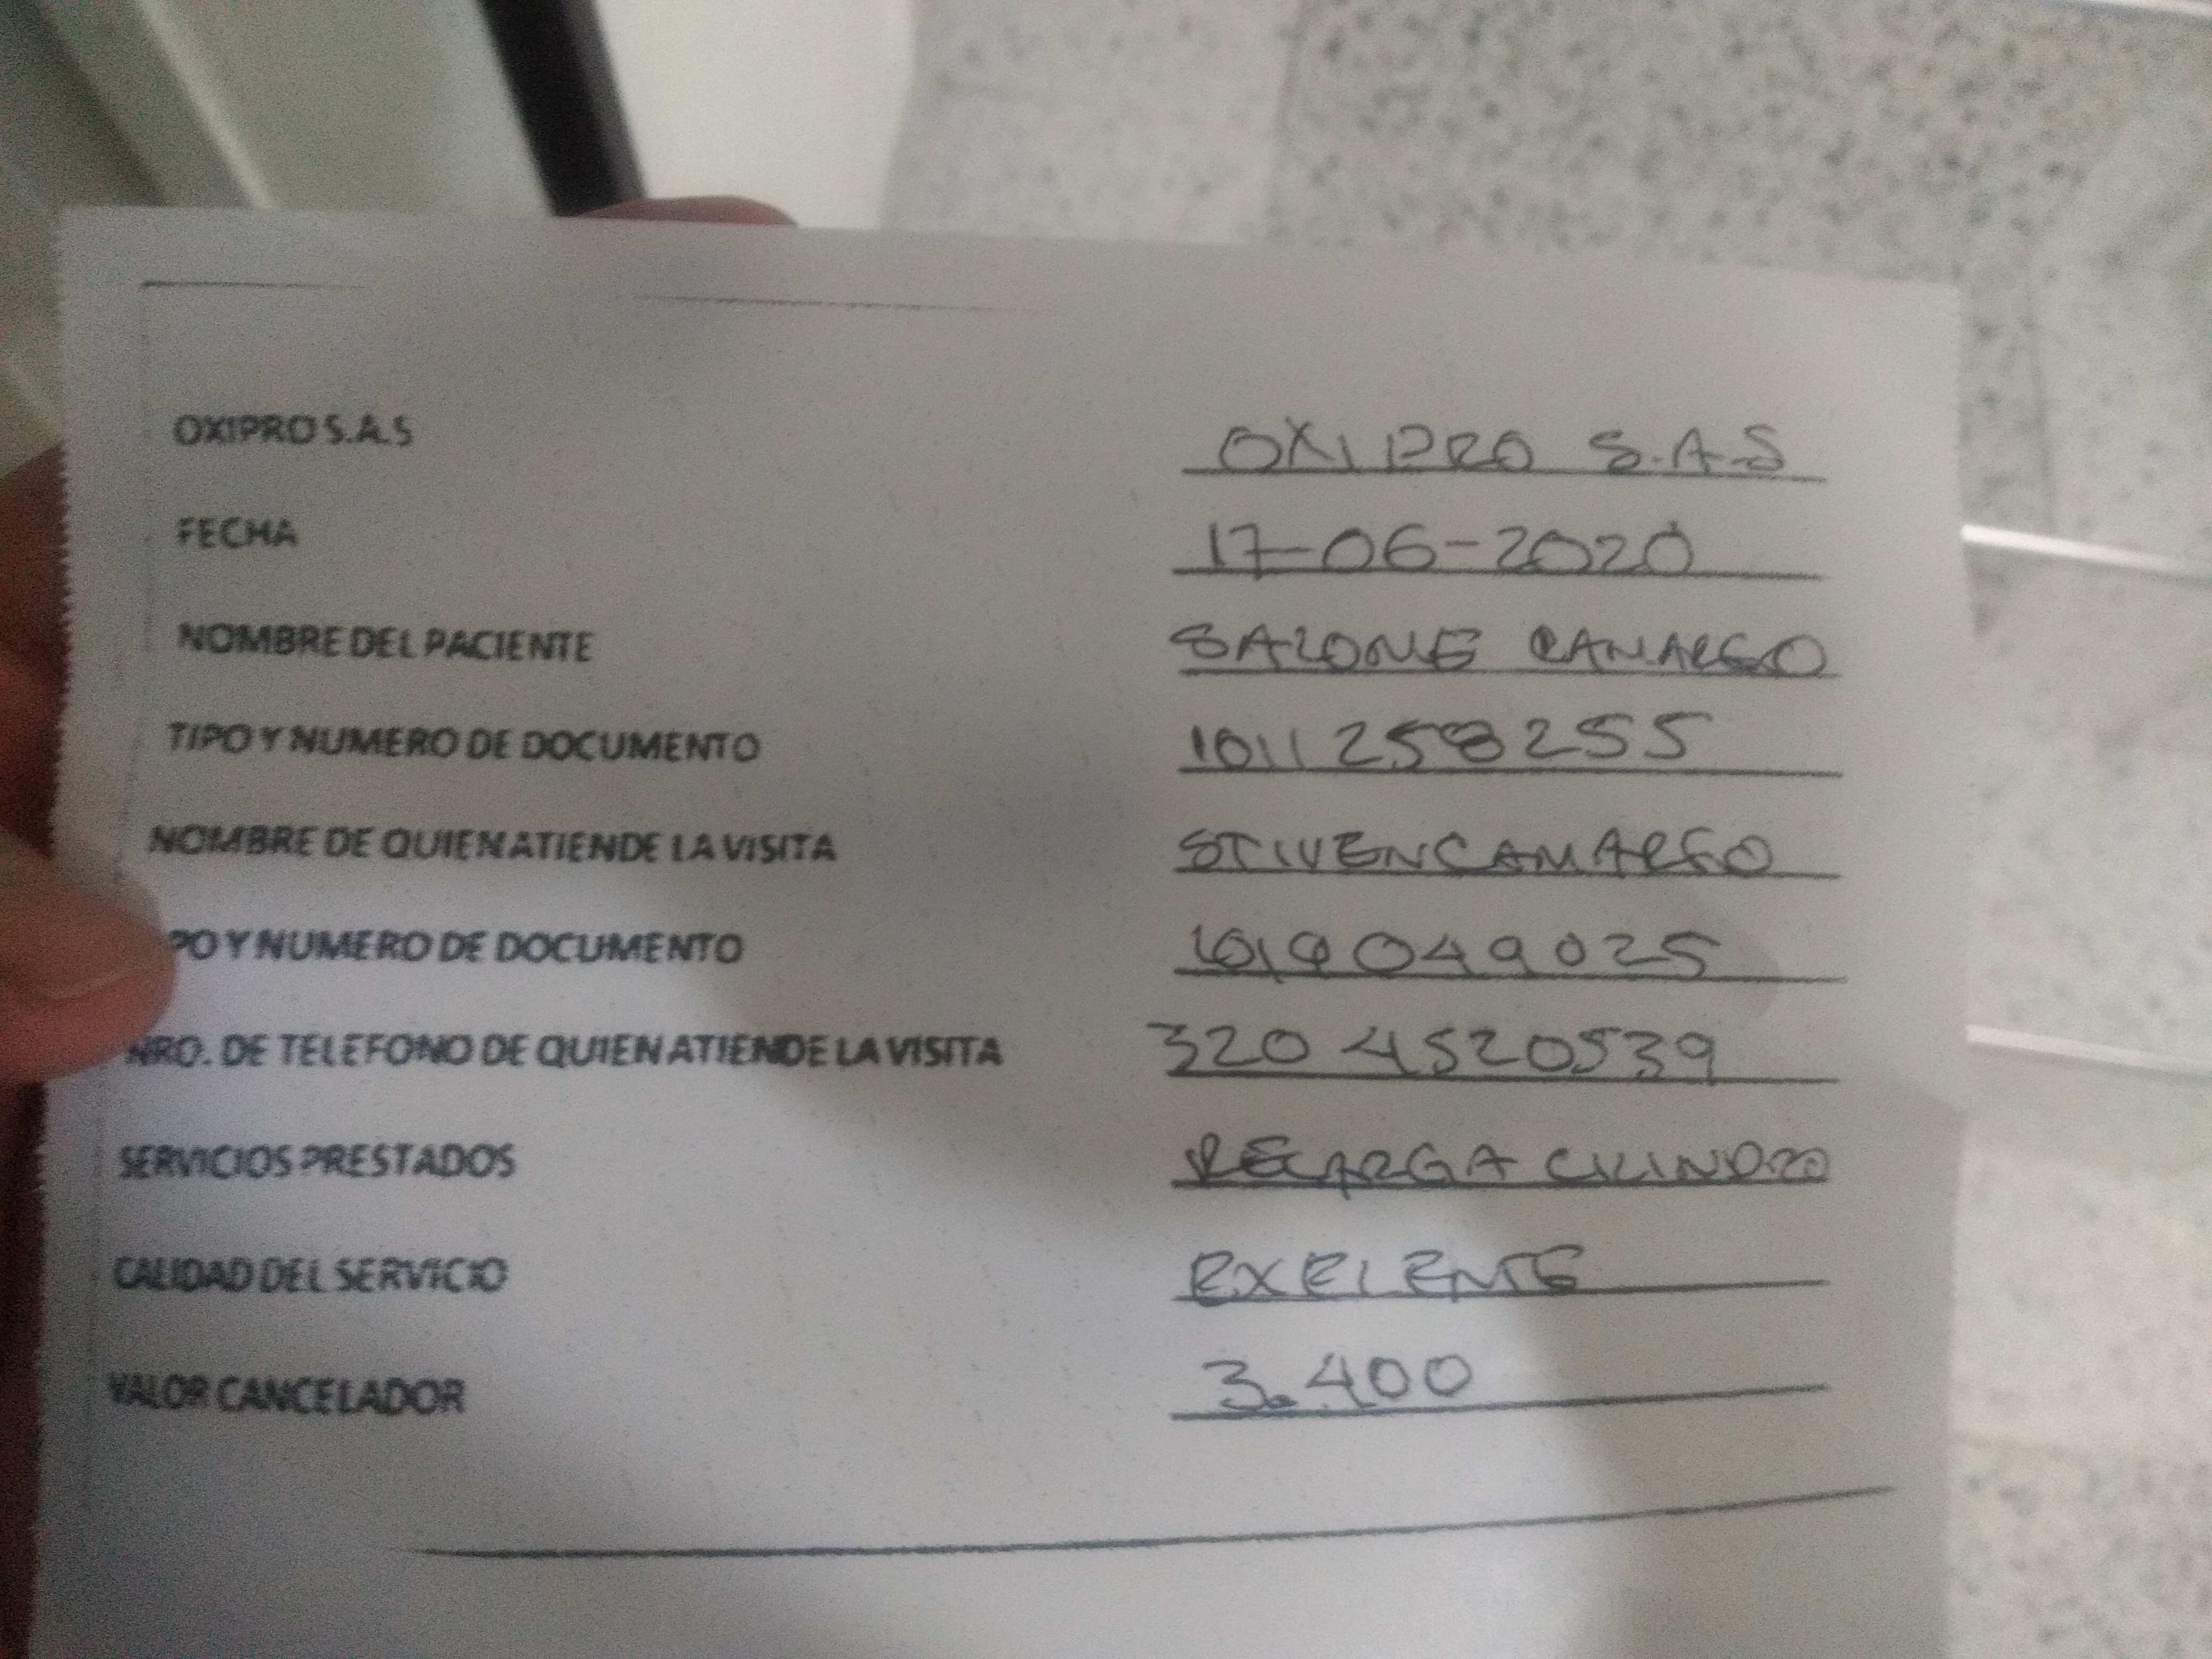 OXIPRO S.A.S OXIPRO S.A.S
FECHA 17-06-2020
NOMBRE DEL PACIENTE SALOME CAMARGO
TIPO Y NUMERO DE DOCUMENTO 1011258255
NOMBRE DE QUIEN ATIENDE LA VISITA STIVEN CAMARGO
PO Y NUMERO DE DOCUMENTO 1019049025
NRO. DE TELEFONO DE QUIEN ATIENDE LA VISITA 320 4520539
SERVICIOS PRESTADOS RECARGA CILINDRO
CALIDAD DEL SERVICIO EXELENTE
VALOR CANCELADOR 3.400